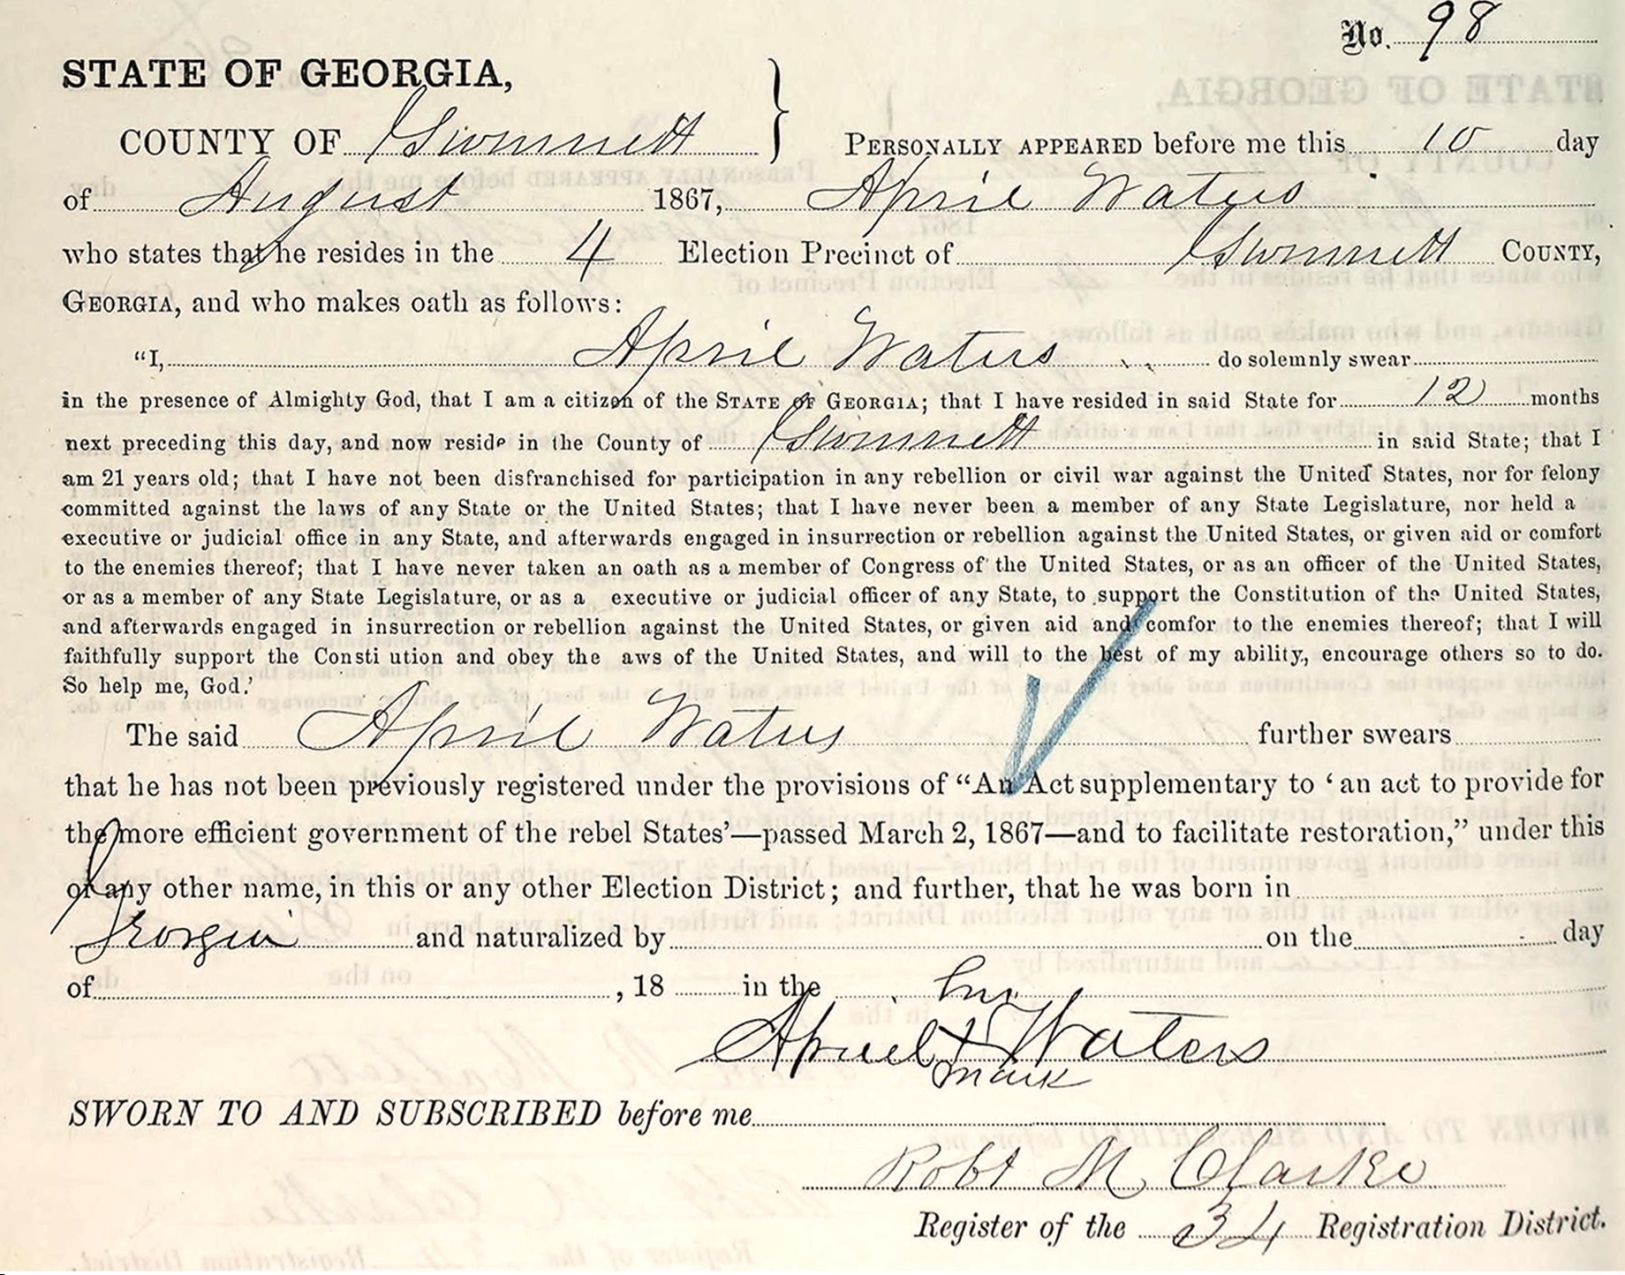 No. 98
STATE OF GEORGIA,
COUNTY OF Gwinnett } PERSONALLY APPEARED before me this 10 day
of August 1867, April Waters
who states that he resides in the 4 Election Precinct of Gwinnett COUNTY,
GEORGIA, and who makes oath as follows:
“I, April Waters do solemnly swear
in the presence of Almighty God, that I am a citizen of the STATE OF GEORGIA; that I have resided in said State for 12 months
next preceding this day, and now reside in the County of Gwinnett in said State; that I
am 21 years old; that I have not been disfranchised for participation in any rebellion or civil war against the United States, nor for felony
committed against the laws of any State or the United States; that I have never been a member of any State Legislature, nor held a
executive or judicial office in any State, and afterwards engaged in insurrection or rebellion against the United States, or given aid or comfort
to the enemies thereof; that I have never taken an oath as a member of Congress of the United States, or as an officer of the United States,
or as a member of any State Legislature, or as a executive or judicial officer of any State, to support the Constitution of the United States,
and afterwards engaged in insurrection or rebellion against the United States, or given aid and comfor to the enemies thereof; that I will
faithfully support the Consti ution and obey the aws of the United States, and will to the best of my ability, encourage others so to do.
So help me, God.’
The said April Waters further swears
that he has not been previously registered under the provisions of “An Act supplementary to ‘an act to provide for
the more efficient government of the rebel States’—passed March 2, 1867—and to facilitate restoration,” under this
or any other name, in this or any other Election District; and further, that he was born in
Georgia and naturalized by on the day
of , 18 in the
his
April X Waters
mark
SWORN TO AND SUBSCRIBED before me
Robt M Clarke
Register of the 34 Registration District.